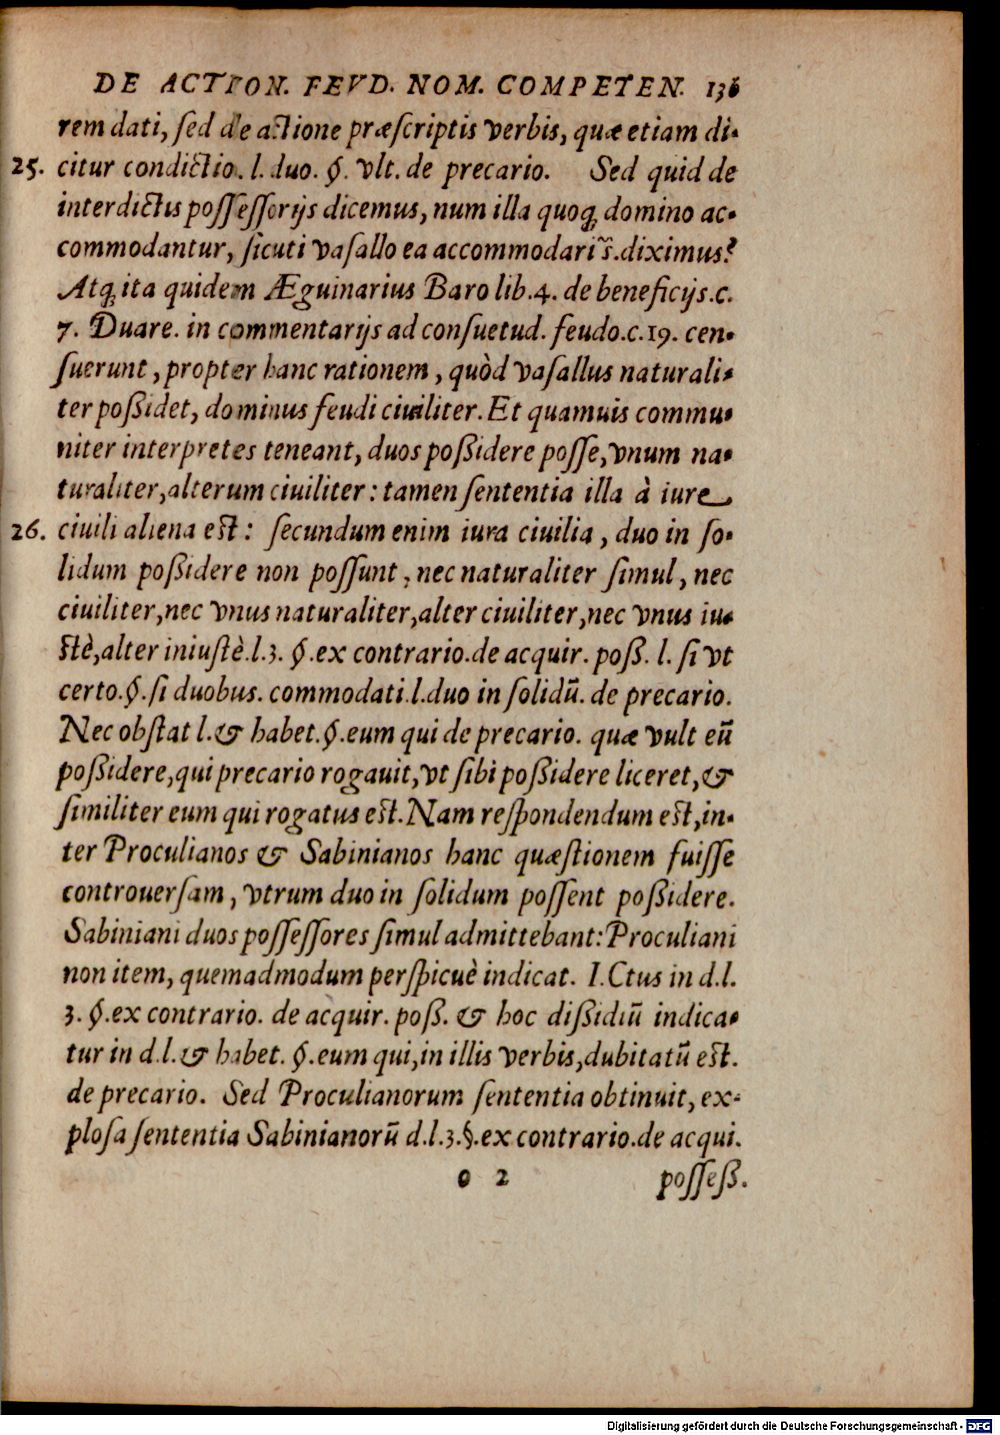 DE ACTION. FEVD. NOM. COMPETEN. 136
rem dati, sed de actione præscriptis verbis, quæ etiam di-
25. citur condictio. l. duo. §. vlt. de precario. Sed quid de
interdictis possessorijs dicemus, num illa quoq; domino ac-
commodantur, sicuti vasallo ea accommodari s̃. diximus?
Atq; ita quidem Æguinarius Baro lib. 4. de beneficijs. c.
7. Duare. in commentarijs ad consuetud. feudo. c. 19. cen-
suerunt, propter hanc rationem, quòd vasallus naturali-
ter poßidet, dominus feudi ciuiliter. Et quamuis commu-
niter interpretes teneant, duos poßidere posse, vnum na-
turaliter, alterum ciuiliter: tamen sententia illa à iure
26. ciuili aliena est: secundum enim iura ciuilia, duo in so-
lidum poßidere non possunt, nec naturaliter simul, nec
ciuiliter, nec vnus naturaliter, alter ciuiliter, nec vnus iu-
stè, alter iniustè. l. 3. §. ex contrario. de acquir. poß. l. si vt
certo. §. si duobus. commodati. l. duo in solidū. de precario.
Nec obstat l. & habet. §. eum qui de precario. quæ vult eū
poßidere, qui precario rogauit, vt sibi poßidere liceret, &
similiter eum qui rogatus est. Nam respondendum est, in-
ter Proculianos & Sabinianos hanc quæstionem fuisse
controuersam, vtrum duo in solidum possent poßidere.
Sabiniani duos possessores simul admittebant: Proculiani
non item, quemadmodum perspicuè indicat. I. Ctus in d. l.
3. §. ex contrario. de acquir. poß. & hoc dißidiū indica-
tur in d. l. & habet. §. eum qui, in illis verbis, dubitatū est.
de precario. Sed Proculianorum sententia obtinuit, ex-
plosa sententia Sabinianorū d. l. 3. §. ex contrario. de acqui.
o 2 posseß.
Digitalisierung gefördert durch die Deutsche Forschungsgemeinschaft - DFG